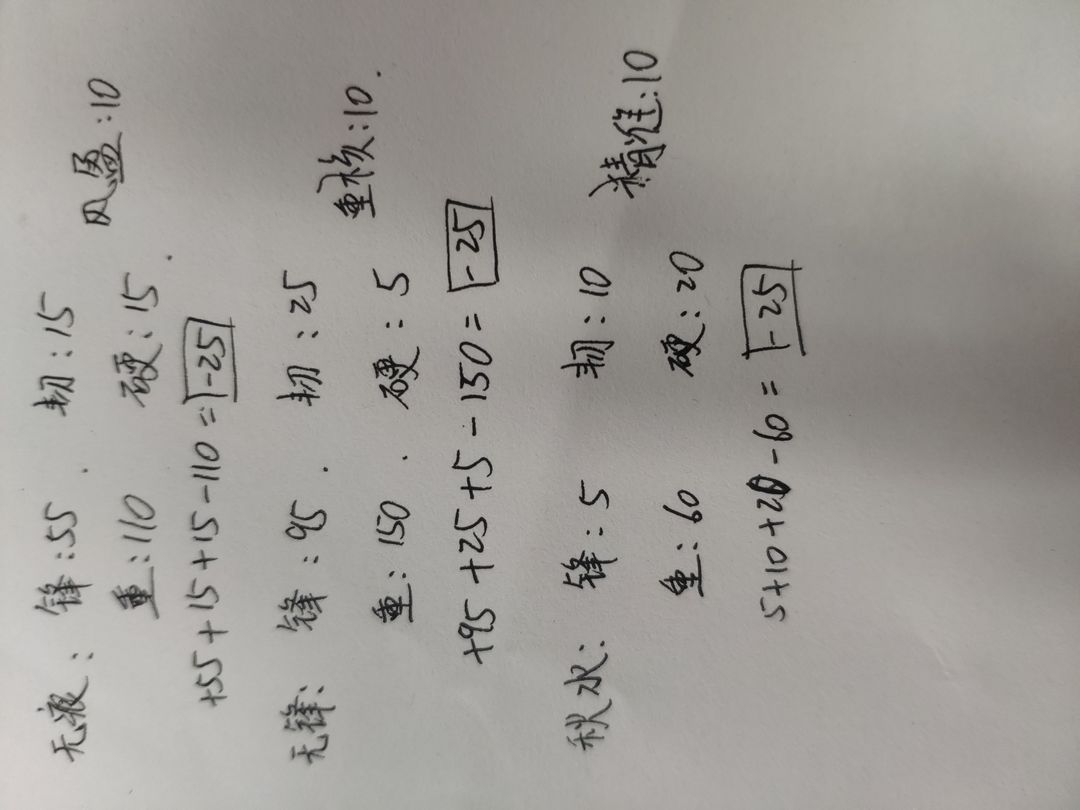 无液: 锋:55. 韧:15 风盈:10
重:110 硬:15.
+55+15+15-110=-25
无锋: 锋:95. 韧:25 重核:10.
重:150. 硬:5
+95+25+5-150=-25
秋水: 锋:5 韧:10 精准:10
重:60 硬:20
5+10+20-60=-25